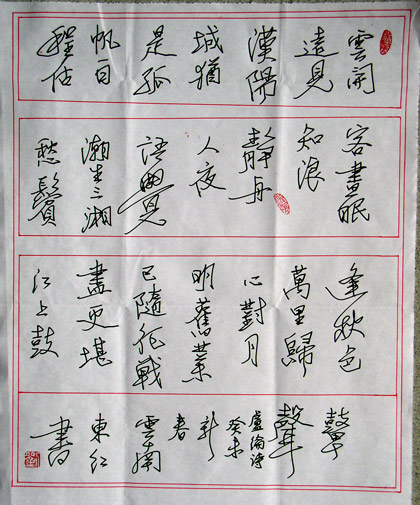 雲開
遠見
漢陽
城猶
是孤
帆一日
程估
客晝眠
知浪
靜舟
人夜
語覺
潮生三湘
愁鬢
逢秋色
萬里歸
心對月
明舊業
已隨征戰
盡更堪
江上鼓
鼙
聲
盧綸詩
癸未
新
春
雲南
東紅
書